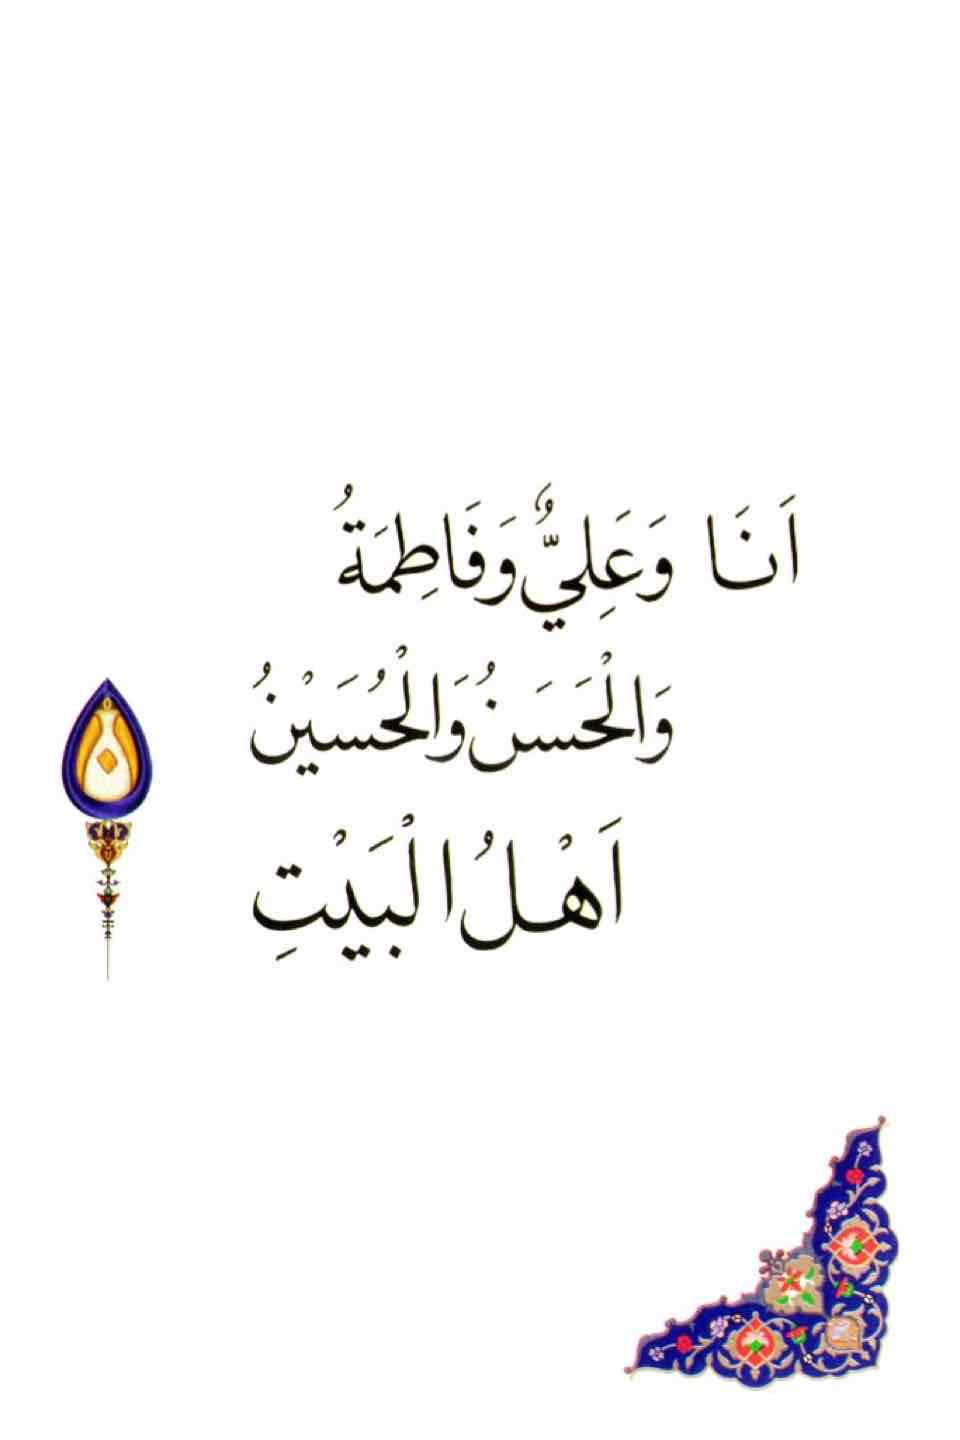 اَنَا وَعَلِيٌّ وَفَاطِمَةُ
وَالْحَسَنُ وَالْحُسَيْنُ
اَهْلُ الْبَيْتِ